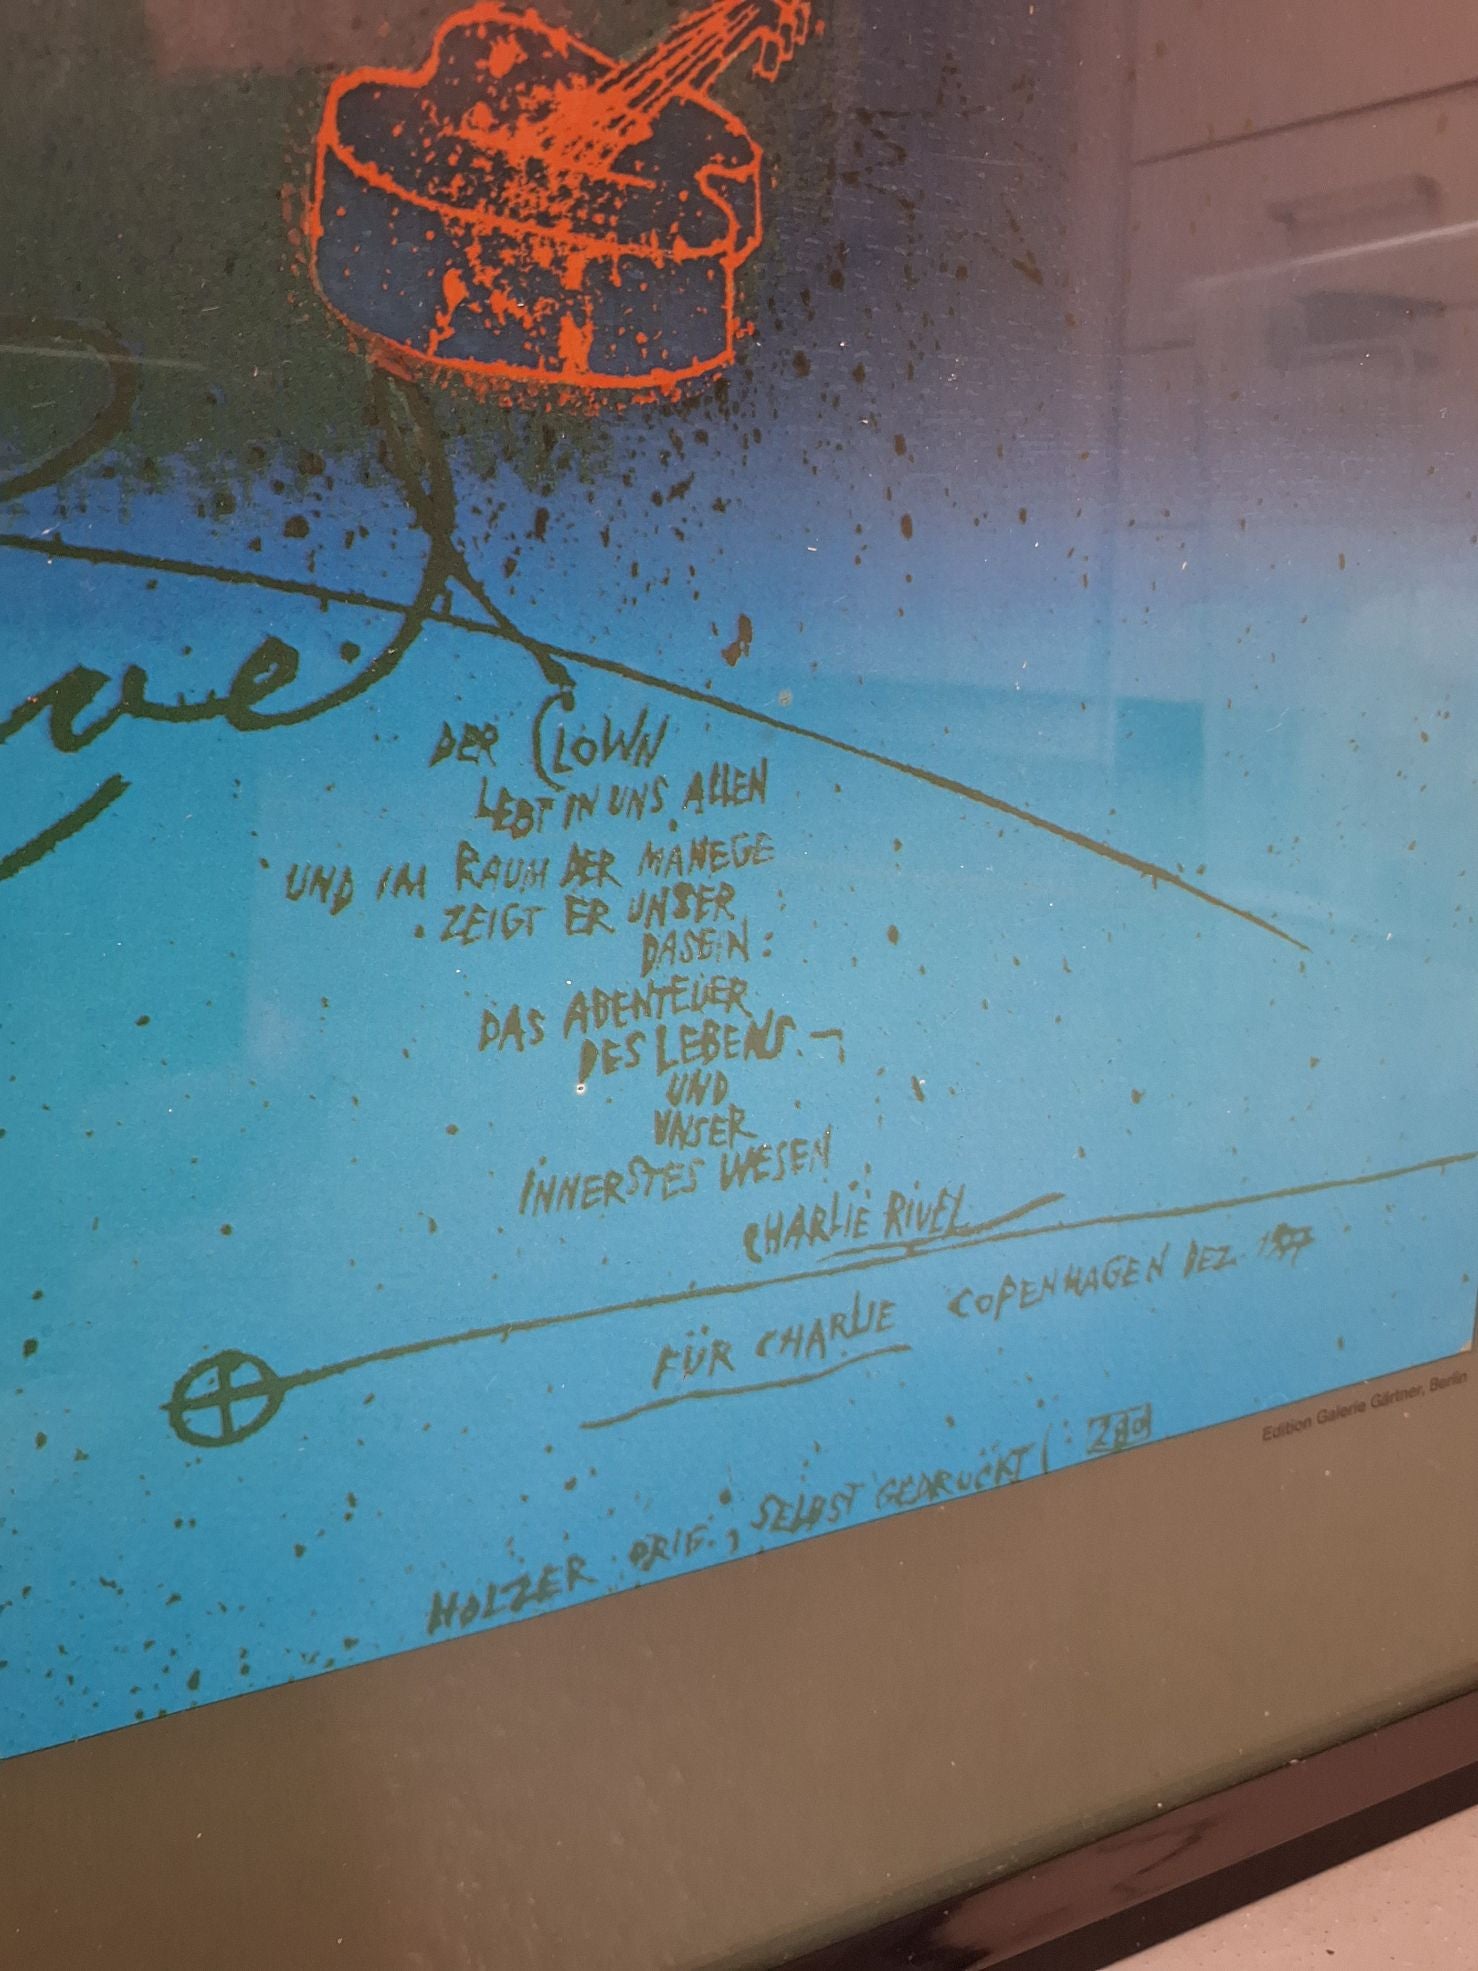 DER CLOWN
LEBT IN UNS ALLEN
UND IM RAUM DER MANEGE
ZEIGT ER UNSER
DASEIN:
DAS ABENTEUER
DES LEBENS
UND
UNSER
INNERSTES WESEN
CHARLIE RIVEL
FÜR CHARLIE COPENHAGEN DEZ.
Edition Galerie Gärtner, Berlin
HOLZER ORIG., SELBST GEDRUCKT